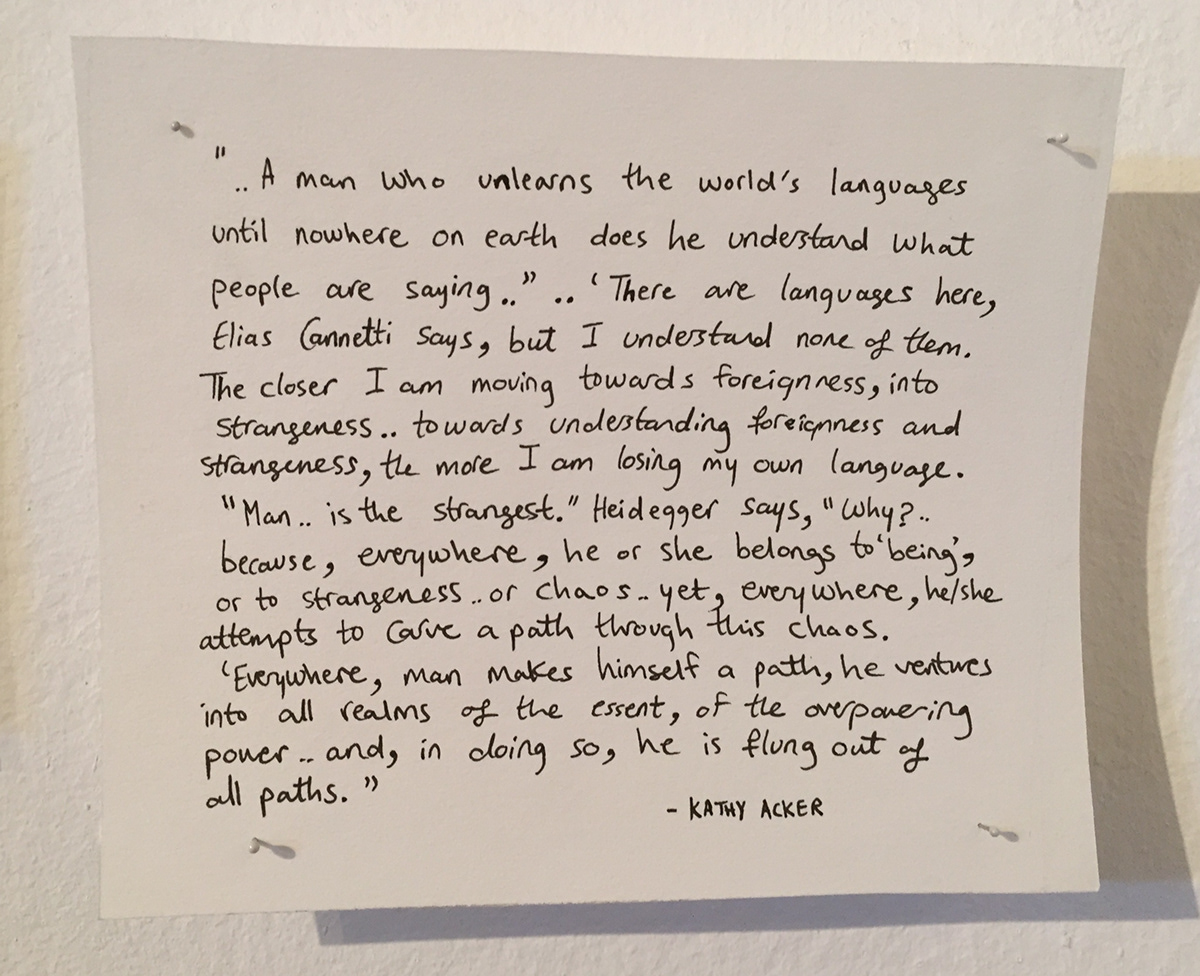 ".. A man who unlearns the world's languages
until nowhere on earth does he understand what
people are saying.." .. 'There are languages here,
Elias Cannetti says, but I understand none of them.
The closer I am moving towards foreignness, into
strangeness.. towards understanding foreignness and
strangeness, the more I am losing my own language.
"Man.. is the strangest." Heidegger says, "Why?..
because, everywhere, he or she belongs to 'being',
or to strangeness.. or chaos.. yet, everywhere, he/she
attempts to carve a path through this chaos.
'Everywhere, man makes himself a path, he ventures
into all realms of the essent, of the overpowering
power.. and, in doing so, he is flung out of
all paths."
- KATHY ACKER